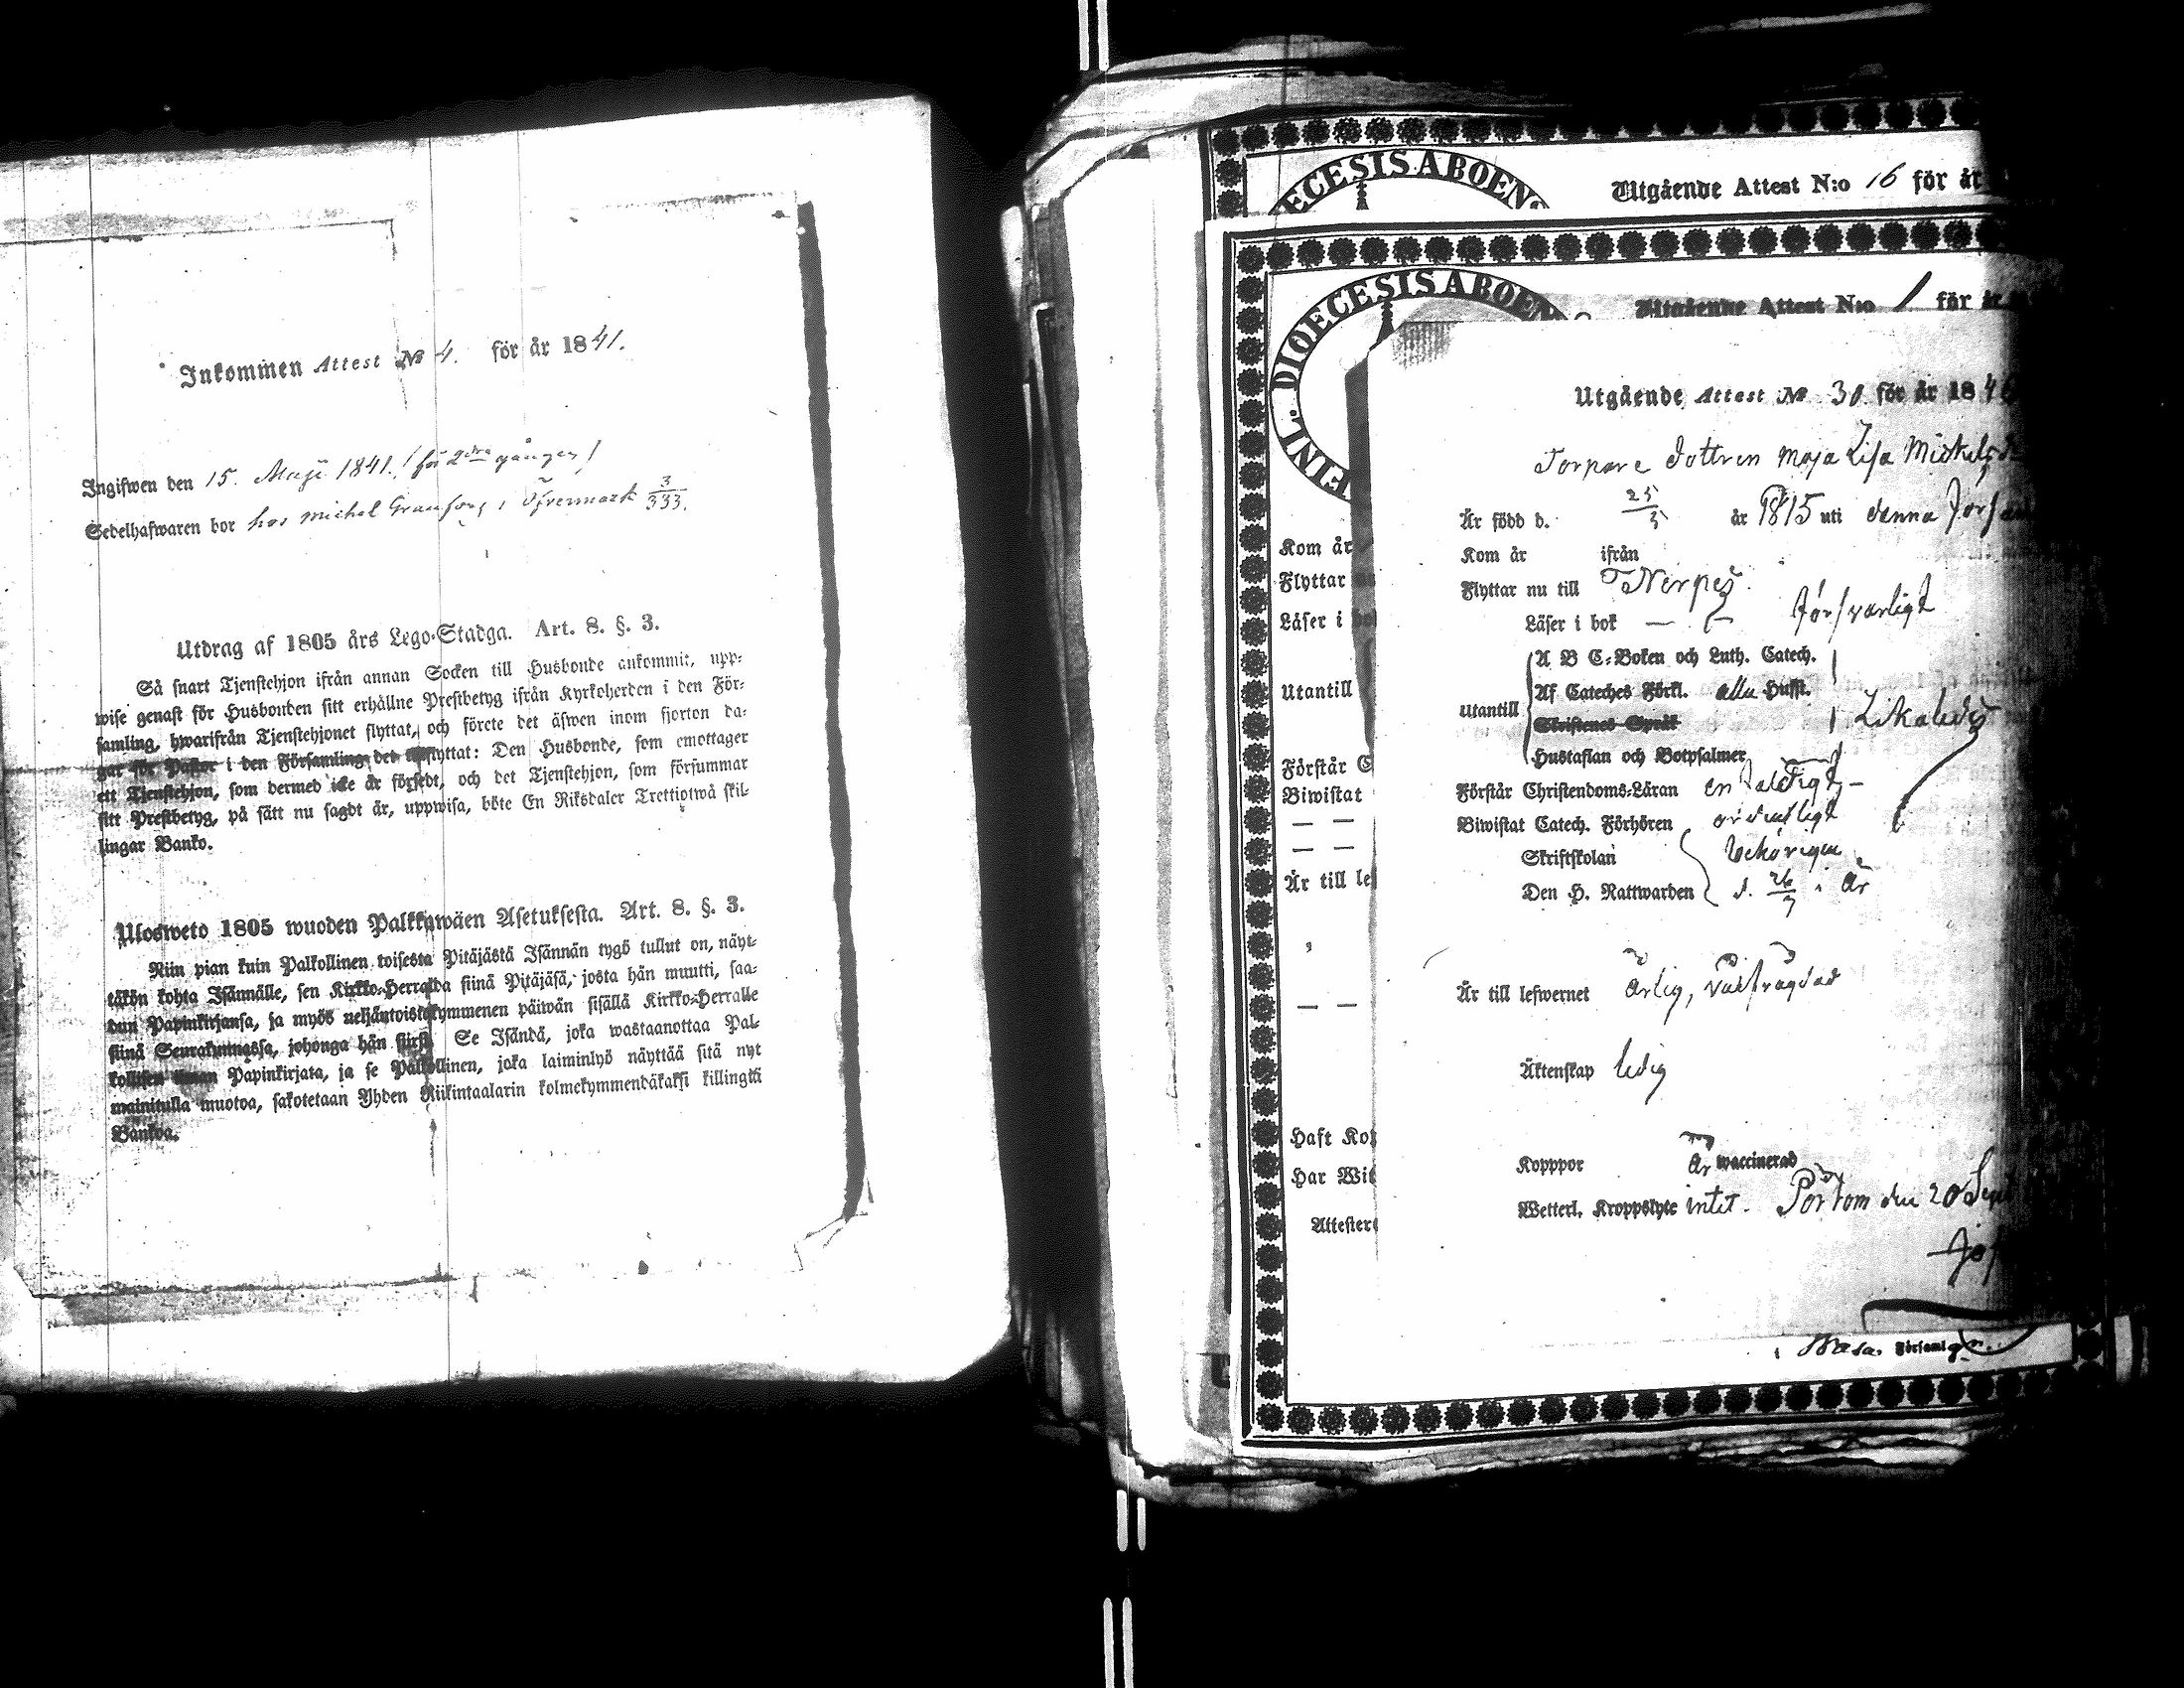 Inkommen Attest № 4. för år 1841.
Ingifwen den 15. Maji 1841. (för 2dra gången)
Sedelhafwaren bor hos Michel i Öfvermark 3/333.
Utdrag af 1805 års Lego-Stadga. Art. 8. §. 3.
Så snart Tjenstehjon ifrån annan Socken till Husbonde ankommit, upp-
wise genast för Husbonden sitt erhållne Prestbetyg ifrån Kyrkoherden i den För-
samling, hwarifrån Tjenstehjonet flyttat, och förete det äfwen inom fjorton da-
gar för Pastor i den Församling det flyttat: Den Husbonde, som emottager
ett Tjenstehjon, som dermed icke är försedt, och det Tjenstehjon, som försummar
sitt Prestbetyg, på sätt nu sagdt är, uppwisa, böte En Riksdaler Trettiotwå skil-
lingar Banko.
Uloswetö 1805 wuoden Palkkawäen Asetuksesta. Art. 8. §. 3.
Niin pian kuin Palkollinen toisesta Pitäjästä Isännän tygö tullut on, näyt-
täkön kohta Isännälle, sen Kirkko-Herralda siinä Pitäjäsä, josta hän muutti, saa-
dun Papinkirjansa, ja myös neljäntoistakymmenen päiwän sisällä Kirkko-Herralle
siinä Seurakunnassa, johonga hän siirsi. Se Isändä, joka wastaanottaa Pal-
kollisen ilman Papinkirjata, ja se Palkollinen, joka laiminlyö näyttää sitä nyt
mainitulla muotoa, sakotetaan Yhden Riikintaalarin kolmekymmendäkaksi killingiä
Bankoa.
ECESIS ABOENS
Utgående Attest N:o 16 för år
DIOECESIS ABOEN
Utgående Attest N:o 1 för år
Kom år
Flyttar
Läser i
Utantill
Förstår C
Biwistat
— —
— —
Är till le
— —
Haft Kop
Har Wit
Attester
Utgående Attest № 30. för år 1846
Torpare Dottren Maja Lisa Michels
Är född d. 25/5 år 1815 uti denna Förs
Kom år ifrån
Flyttar nu till Nerpes.
Läser i bok — försvarligt
A B C-Boken och Luth. Catech.
Af Cateches Förkl. alla Hufst.
Utantill Skriftenes Språk Likaledes
Hustaflan och Botpsalmer
Förstår Christendoms-Läran enfaldigt —
Biwistat Catech. Förhören ordentligt
Skriftskolan behörigen
Den H. Nattwarden d. 26/7 i År
Är till lefwernet Ärlig, välfrägdad
Äktenskap ledig
Kopppor Är waccinerad
Wetterl. Kroppslyte intet. Pörtom den 20 Sept
i Wasa Församlg